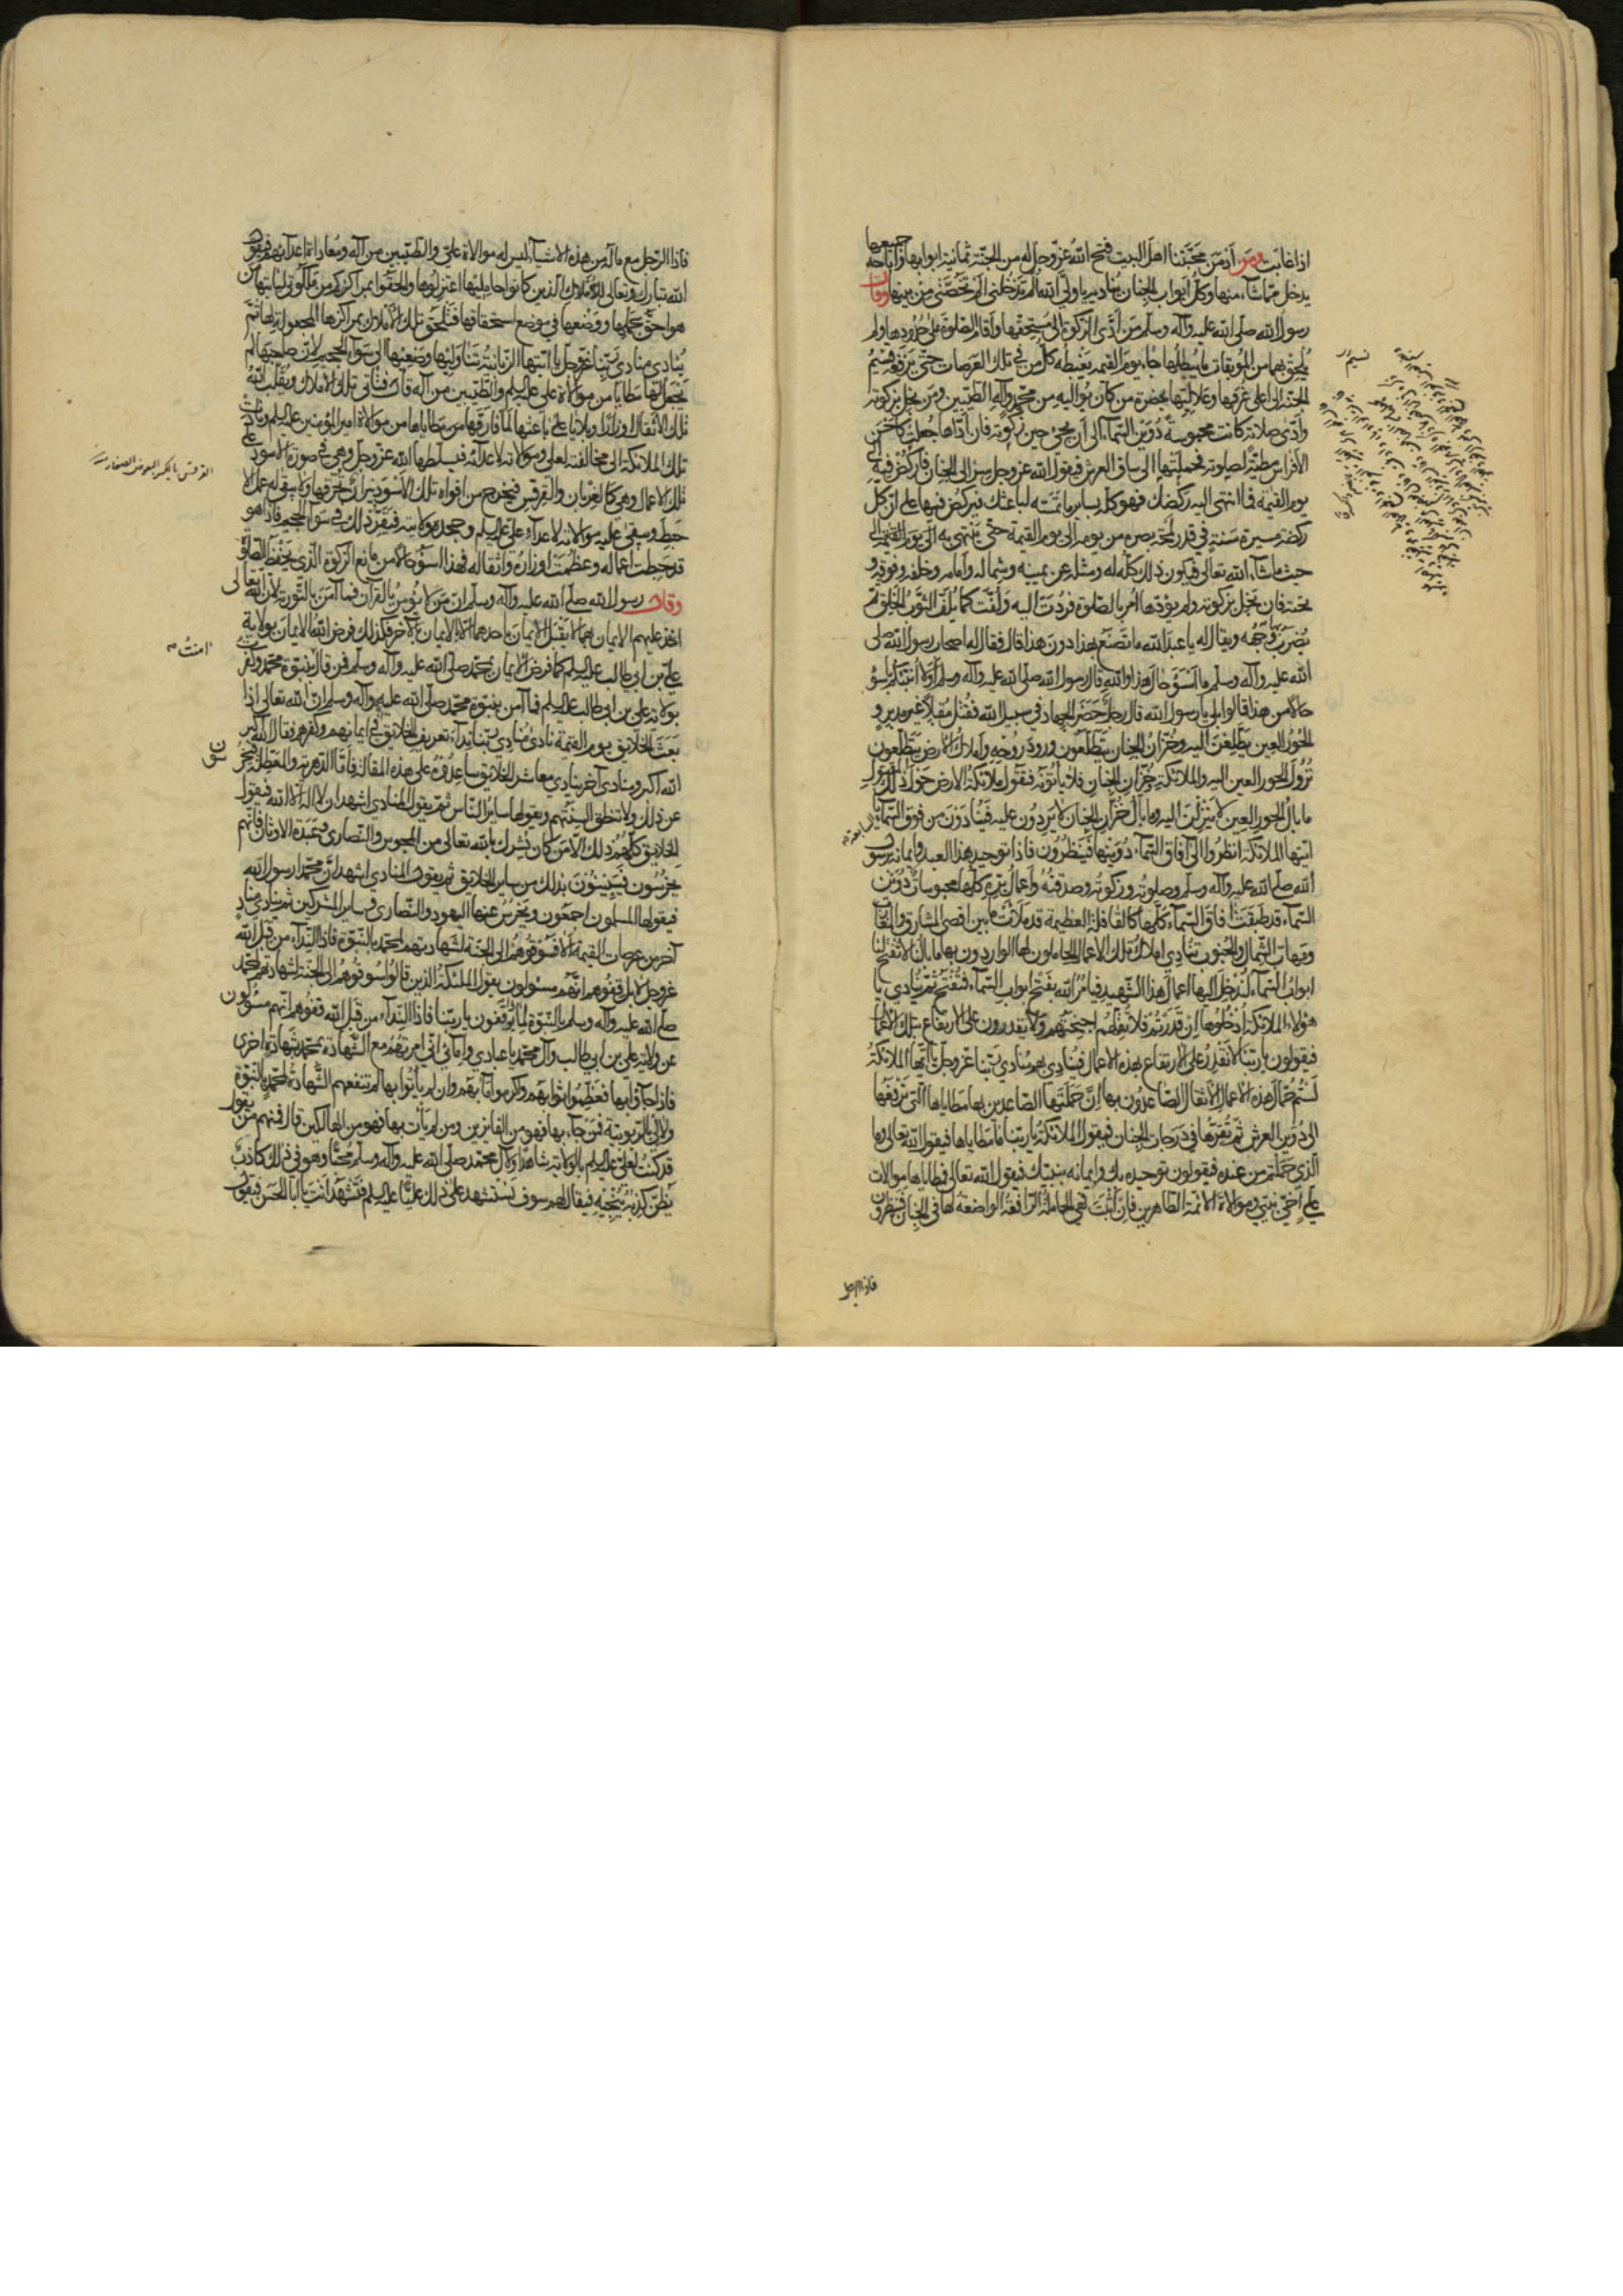 اذا غابت ومن ادمن محبتنا اهل البيت فتح الله عز وجل له من الجنة ثمانية ابوابها واباحه جميعها
يدخل مما شاء منها وكل ابواب الجنان تناديه يا ولى الله الم تدخلنى الم تخصنى من بينها وقال
رسول الله صلى الله عليه وآله وسلم من ادى الزكوة الى مستحقها واقام الصلوة على حدودها ولم
يلحق بهما من الموبقات ما يبطلهما جاء يوم القيمة يغبطه كل من فى تلك العرصات حتى يرفعه نسيم
الجنة الى اعلى غرفها وعلاليها بحضرة من كان يواليه من محمد وآله الطيبين ومن بخل بزكوته
وادى صلاته كانت محبوسة دوين السماء الى ان يجئ حين زكوته فان اداها جعلت كاحسن
الافراس مطية لصلوته فحملتها الى ساق العرش فيقول الله عز وجل سر الى الجنان فاركض فيها الى
يوم القيمة فما انتهى اليه ركضك فهو كله بساير ما تمسه لباعثك فيركض فيها على ان كل
ركضة مسيرة سنة فى قدر لمحة بصره من يومه الى يوم القيمة حتى ينتهى به الى يوم القيمة الى
حيث ما شاء الله تعالى فيكون ذلك كله له ومثله عن يمينه وشماله وامامه وخلفه وفوقه و
تحته فان بخل بزكوته ولم يؤدها امر بالصلوة فردت اليه ولفت كما يلف الثوب الخلق ثم
يضرب بها وجهه ويقال له يا عبد الله ما تصنع بهذا دون هذا قال فقال له اصحاب رسول الله صلى
الله عليه وآله وسلم ما اسوء حال هذا والله قال رسول الله صلى الله عليه وآله وسلم اولا انبئكم باسوء
حالا من هذا قالوا بلى يا رسول الله قال رجل حضر الجهاد فى سبيل الله فقتل مقبلا غير مدبر و
الحور العين يطلعن اليه وخزان الجنان يتطلعون ورود روحه واملاك الارض يتطلعون
نزول الحور العين اليه والملائكة وخزان الجنان فلا ياتونه فتقول ملائكة الارض حوالى ذلك المقتول
ما بال الحور العين لا ينزلن اليه وما بال خزان الجنان لا يردون عليه فينادون من فوق السماء السابعة يا
ايتها الملائكة انظروا الى آفاق السماء دوينها فينظرون فاذا توحيد هذا العبد وايمانه برسول
الله صلى الله عليه وآله وسلم وصلوته وزكوته وصدقته واعمال بره كلها محبوسات دوين
السماء قد طبقت آفاق السماء كلها كالقافلة العظيمة قد ملأت ما بين اقصى المشارق والمغارب
ومهاب الشمال والجنوب تنادى املاك تلك الاعمال الحاملون لها الواردون بها ما بالنا لا تفتح لنا
ابواب السماء لندخل اليها اعمال هذا الشهيد فيأمر الله بفتح ابواب السماء فتفتح ثم ينادى يا
هؤلاء الملائكة ادخلوها ان قدرتم فلا تقلهم اجنحتهم ولا يقدرون على الارتفاع بتلك الاعمال
فيقولون يا ربنا لا نقدر على الارتفاع بهذه الاعمال فينادى بهم منادى ربنا عز وجل يا ايها الملائكة
لستم حمال هذه الاعمال الاثقال الصاعدون بها ان حملتها الصاعدين بها مطاياها التى ترفعها
الى دوين العرش ثم تقرها فى درجات الجنان فيقول الملائكة يا ربنا ما مطاياها فيقول الله تعالى وما
الذى حملتم من عنده فيقولون توحيده بك وايمانه بنبيك فيقول الله تعالى فمطاياها موالات
على اخى نبيى وموالاة الائمة الطاهرين فان اتت فهى الحاملة الرافعة الواضعة لها فى الجنان فينظرون
فاذا الرجل
فاذا الرجل مع ماله من هذه الاشياء ليس له موالاة على والطيبين من آله ومعاداة اعدائهم فيقول
الله تبارك وتعالى للاملاك الذين كانوا حامليها اعتزلوها والحقوا بمراكزكم من ملكوتى لياتيها من
هو احق بحملها ووضعها فى موضع استحقاقها فتلحق تلك الاملاك بمراكزها المجعولة لها ثم
ينادى منادى ربنا عز وجل يا ايتها الزبانية تناوليها وضعيها الى سواء الجحيم لان صاحبها لم
يجعل لها مطايا من موالاة على عليه السلم والطيبين من آله قال فتاتى تلك الاملاك ويقلب الله
تلك الاثقال اوزارا وبلايا على باعثها لما فارقها من مطاياها من موالاة امير المؤمنين عليه السلم ونادت
تلك الملائكة الى مخالفته لعلى وموالاته لاعدائه فيسلطها الله عز وجل وهى فى صورة الاسود على
تلك الاعمال وهى كالغربان والقرقس فيخرج من افواه تلك الاسود نيران تحرقها ولا يبقى له عمل الا
حبط وبيقى عليه موالاته لاعداء على عليه السلم وجحده ولايته فيقره ذلك فى سواء الجحيم فاذا هو
قد حبطت اعماله وعظمت اوزاره واثقاله فهذا اسوء حالا من مانع الزكوة الذى يحفظ الصلوة
وقال رسول الله صلى الله عليه وآله وسلم ان من لا يؤمن بالقرآن فما آمن بالتورية لان الله تعالى
اخذ عليهم الايمان بهما لا يقبل الايمان باحدهما الا بالايمان بالآخر فكذلك فرض الله الايمان بولاية
على بن ابى طالب عليه السلم كما فرض الايمان بمحمد صلى الله عليه وآله وسلم فمن قال آمنت بنبوة محمد وكفرت
بولاية على بن ابى طالب عليه السلم فما آمن بنبوة محمد صلى الله عليه وآله وسلم ان الله تعالى اذا
بعث الخلائق يوم القيمة نادى منادى ربنا نداء تعريف الخلائق فى ايمانهم وكفرهم فقال الله اكبر
الله اكبر ومنادى آخر ينادى معاشر الخلائق ساعدوه على هذه المقالة فاما الدهرية والمعطلة فيخرسون
عن ذلك ولا تنطق السنتهم ويقولها ساير الناس ثم يقول المنادى اشهد ان لا اله الا الله فيقول
الخلايق كلهم ذلك الا من كان يشرك بالله تعالى من المجوس والنصارى وعبدة الاوثان فانهم
يخرسون فيبينون بذلك من ساير الخلايق ثم يقول المنادى اشهد ان محمدا رسول الله
فيقولها المسلمون اجمعون ويخرس عنها اليهود والنصارى وساير المشركين ثم ينادى مناد
آخر من عرصات القيمة الا فسوقوهم الى الجنة لشهادتهم لمحمد بالنبوة فاذا النداء من قبل الله
عز وجل لا بل قفوهم انهم مسئولون يقول الملئكة الذين قالوا سوقوهم الى الجنة لشهادتهم لمحمد
صلى الله عليه وآله وسلم بالنبوة لماذا يوقفون يا ربنا فاذا النداء من قبل الله قفوهم انهم مسئولون
عن ولاية على بن ابى طالب وآل محمد يا عبادى وامائى انى امرتهم مع الشهادة بمحمد بشهادة اخرى
فاذا جاؤا بها فعظموا ثوابهم واكرموا مآبهم وان لم يأتوا بها لم تنفعهم الشهادة لمحمد بالنبوة
ولا لى بالربوبية فمن جاء بها فهو من الفائزين ومن لم يأت بها فهو من الهالكين قال فمنهم من يقول
قد كنت لعلى عليه السلم بالولاية شاهدا ولآل محمد صلى الله عليه وآله وسلم محبا وهو فى ذلك كاذب
يظن كذبه ينجيه فيقال لهم سوف نستشهد على ذلك عليا عليه السلم فتشهد انت يا ابا الحسن فيقول
القرقس بالكسر البعوض الصغار
امنت